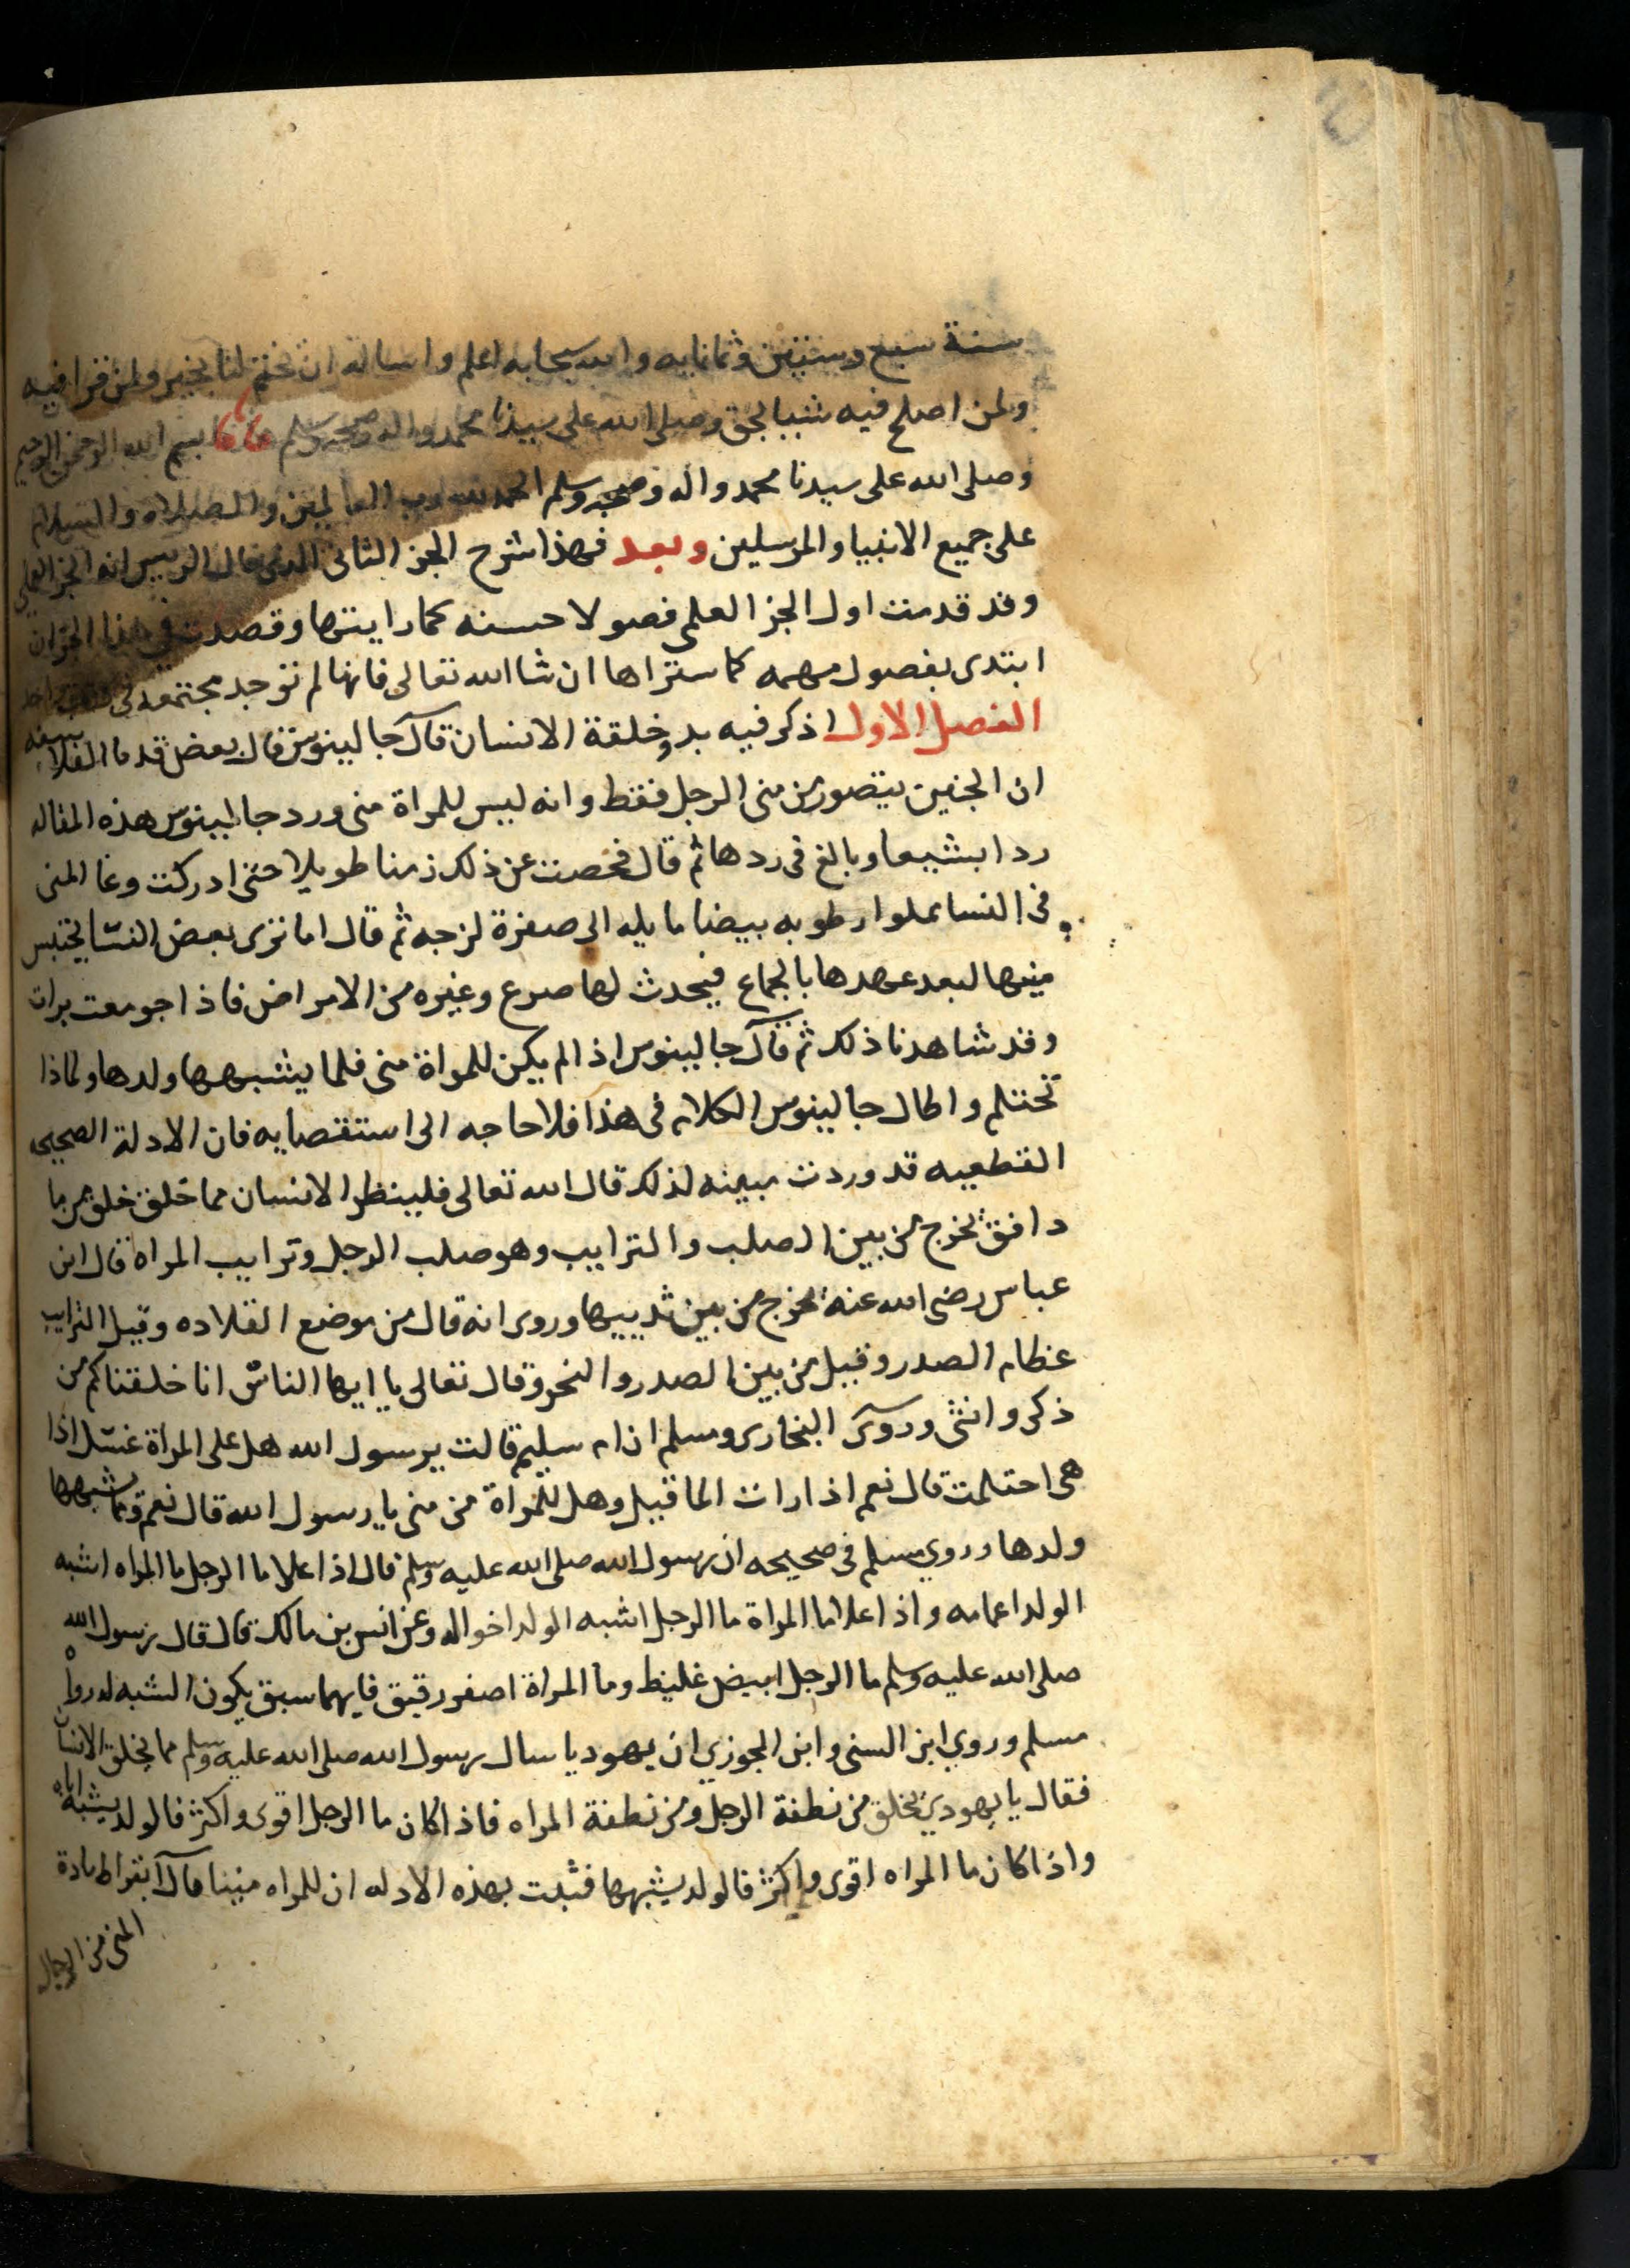 سنة سبع وستين وثمانمايه والله سبحانه اعلم واساله ان يختم لنا بخير ولمن قرا فيه
ولمن اصلح فيه شيبا بحق وصلى الله على سيدنا محمد واله وصحبه وسلم بسم الله الرحمن الرحيم
وصلى الله على سيدنا محمد واله وصحبه وسلم الحمد لله رب العالمين والصلاه والسلام
على جميع الانبيا والمرسلين وبعد فهذا شرح الجز الثانى الذى قال الرييس انه الجز العملي
وقد قدمت اول الجز العلمى فصولا حسنه كما رايتها وقصدت في هذا الجز ان
ابتدى بفصول مهمه كما ستراها ان شا الله تعالى فانها لم توجد مجتمعه فى كتاب واحد
الفصل الاول اذكر فيه بدو خلقة الانسان قال جالينوس قال بعض قدما الفلاسفه
ان الجنين يتصور من منى الرجل فقط وانه ليس للمراة منى ورد جالينوس هذه المقاله
ردا بشيعا وبالغ فى ردها ثم قال فحصت عن ذلك زمنا طويلا حتى ادركت وعا المنى
فى النسا مملوا رطوبه بيضا مايله الى صفرة لزجه ثم قال اما ترى بعض النسا يحتبس
منيها لبعد عهدها بالجماع فيحدث لها صرع وغيره من الامراض فاذا جومعت برات
وقد شاهدنا ذلك ثم قال جالينوس اذا لم يكن للمراة منى فلما يشبهها ولدها ولماذا
تحتلم واطال جالينوس الكلام فى هذا فلا حاجه الى استقصايه فان الادلة الصحيحه
القطعيه قد وردت مبينه لذلك قال الله تعالى فلينظر الانسان مما خلق خلق من ما
دافق يخرج من بين الصلب والترايب وهو صلب الرجل وترايب المراه قال ابن
عباس رضى الله عنه يخرج من بين ثدييها وروى انه قال من موضع القلاده وقيل الترايب
عظام الصدر وقيل من بين الصدر والنحر وقال تعالى يا ايها الناس انا خلقناكم من
ذكر وانثى وروى البخارى ومسلم ان ام سليم قالت يرسول الله هل على المراة غسل اذا
هى احتلمت قال نعم اذا رات الما قيل وهل للمراة من منى يا رسول الله قال نعم وبما يشبهها
ولدها وروي مسلم فى صحيحه ان رسول الله صلى الله عليه وسلم قال اذا علا ما الرجل ما المراه اشبه
الولد اعمامه واذا علا ما المراة ما الرجل اشبه الولد اخواله وعن انس بن مالك قال قال رسول الله
صلى الله عليه وسلم ما الرجل ابيض غليظ وما المراة اصفر رقيق فايهما سبق يكون الشبه له رواه
مسلم وروي ابن السنى وابن الجوزي ان يهوديا سال رسول الله صلى الله عليه وسلم مما يخلق الانسان
فقال يا يهودي يخلق من نطفة الرجل ومن نطفة المراه فاذا كان ما الرجل اقوى واكثر فالولد يشبه اباه
واذا كان ما المراه اقوى واكثر فالولد يشبهها فثبت بهذه الادله ان للمراه منيا قال ابقراط مادة
المنى من الرجال